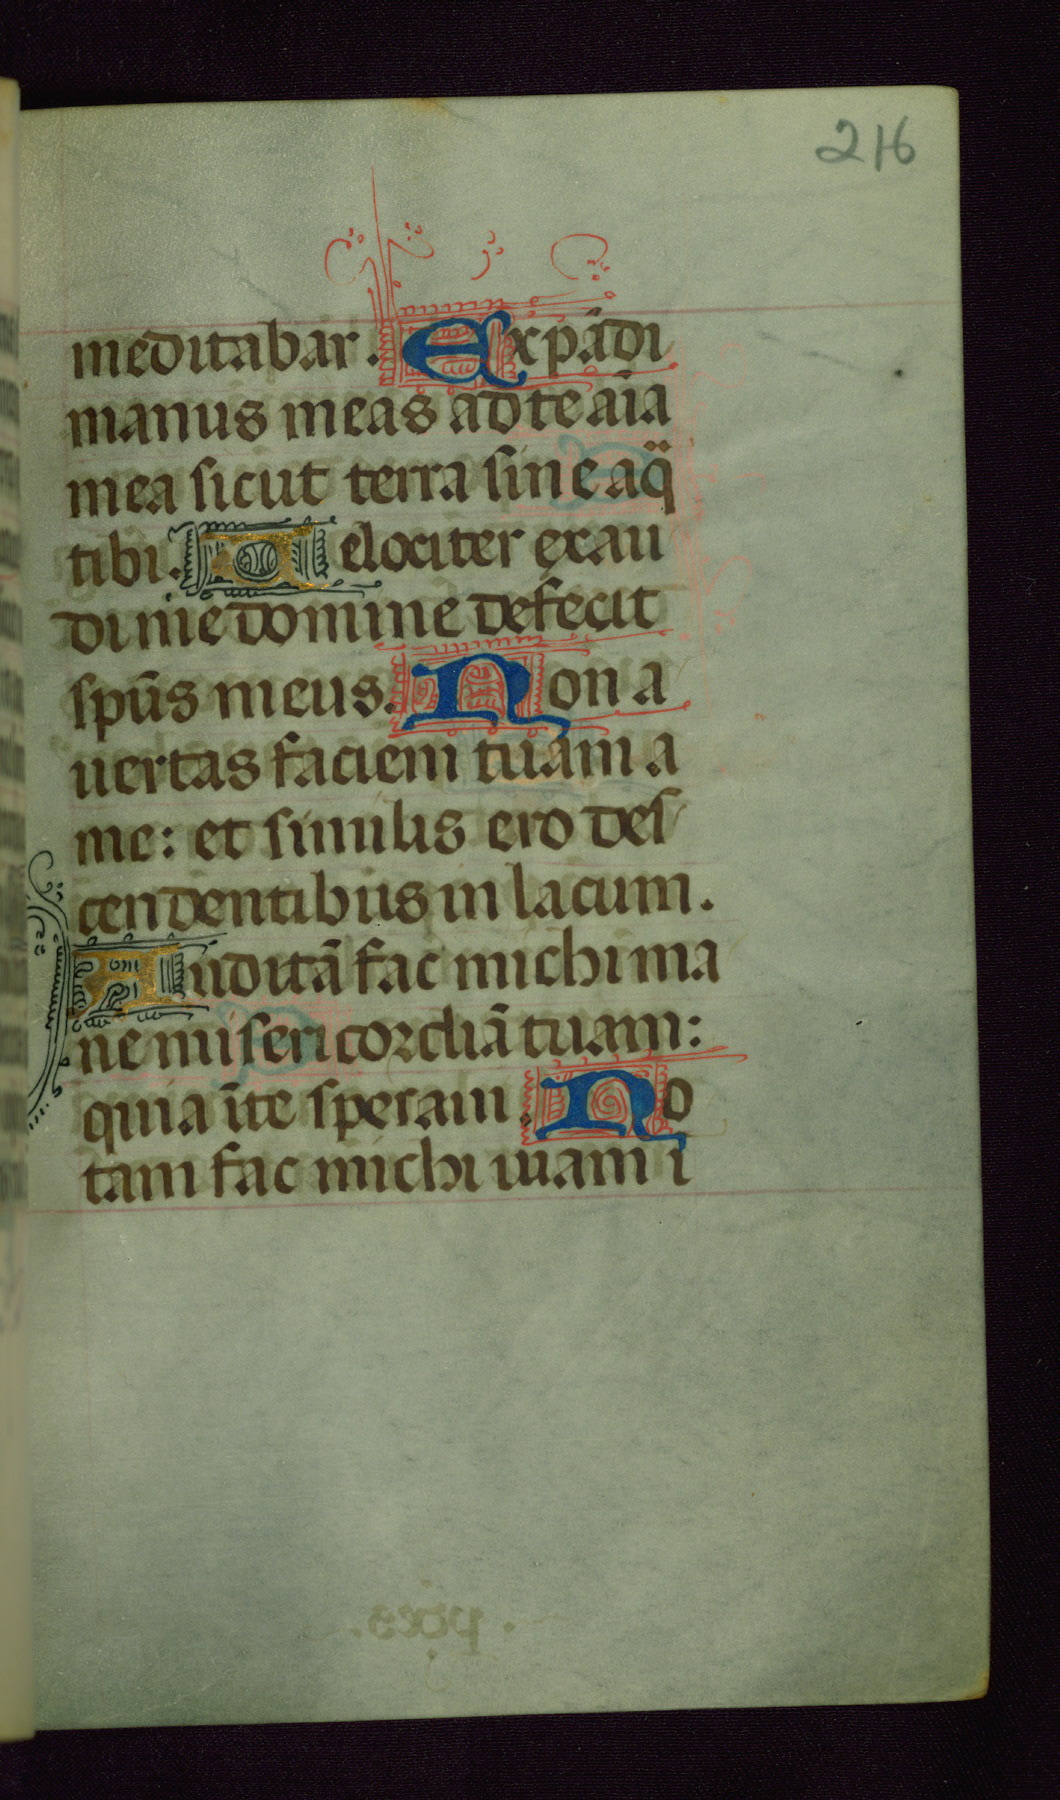 216
meditabar. Expãdi
manus meas ad te aĩa
mea sicut terra sine aq̈
tibi. Velociter exau
di me domine defecit
spũs meus. Non a
uertas faciem tuam a
me: et similis ero des
cendentibus in lacum.
Auditã fac michi ma
ne misericordiã tuam:
quia ĩ te speraui. No
tam fac michi uiam i